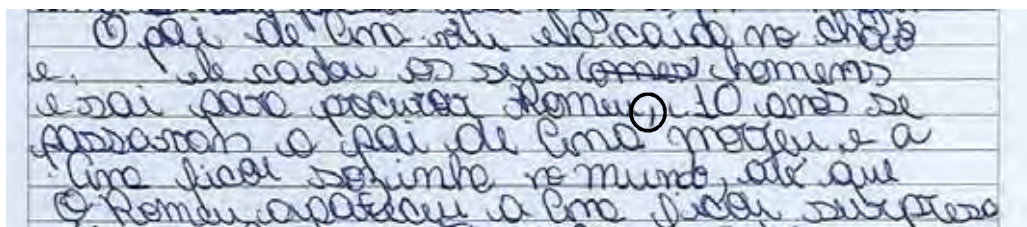 O pai de Ana vou ela caida no chão
e. ele cadou os seus (omes) homems
e sai para procurar Romeu, 10 anos se
passaram o pai de Ana morreu e a
Ana ficou sozinha no mundo, até que
O Romeu apareceu a Ana ficou surpresa